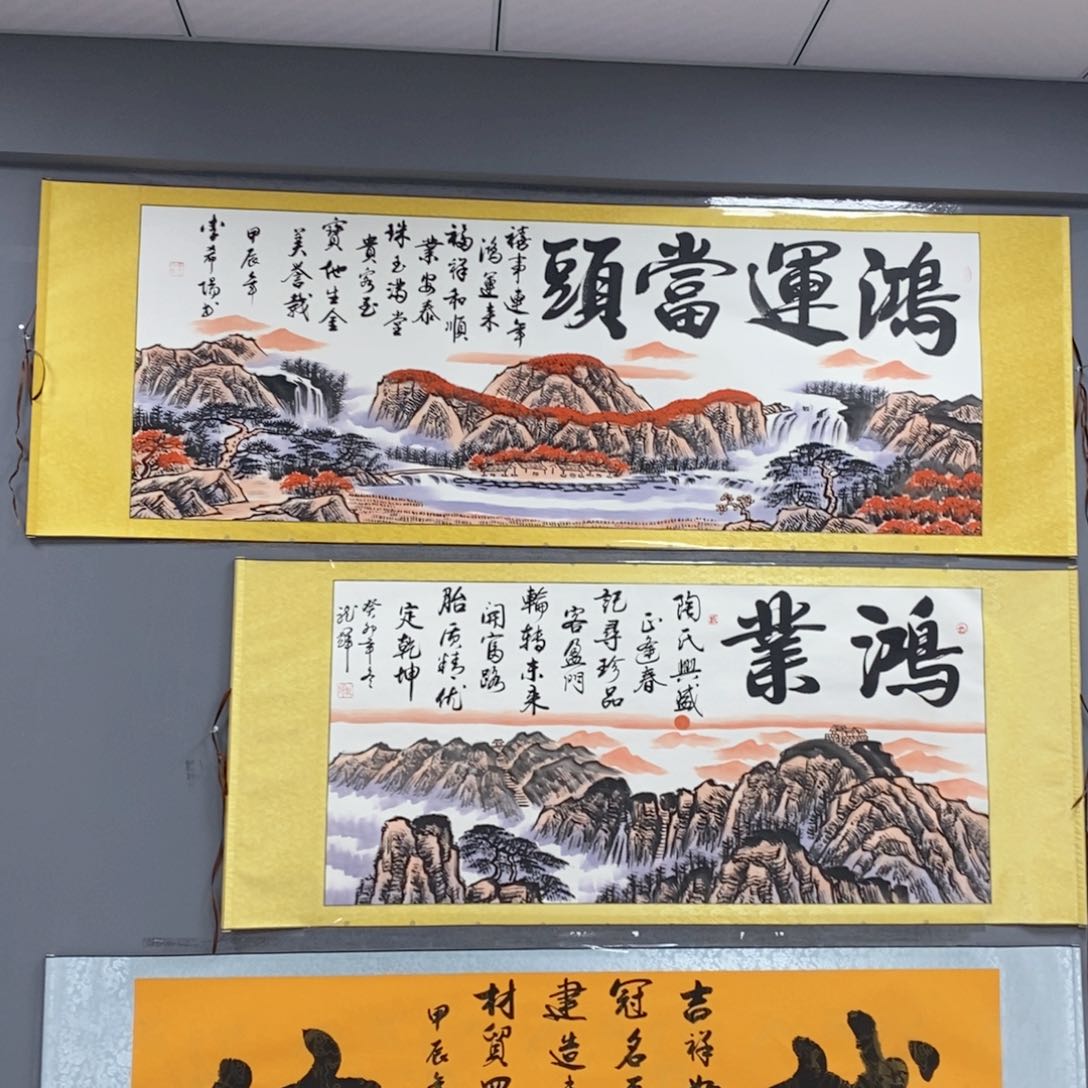 鴻運當頭
禧事連年
鴻運来
福祥和順
業安泰
珠玉滿堂
貴客至
寶地生金
美誉載
甲辰年
李希陽书
鴻業
陶氏興盛
正逢春
記尋珍品
客盈門
輪轉未来
開富路
胎质精优
定乾坤
癸卯年冬
龍輝
吉祥
冠名
建造
材貿四
甲辰年